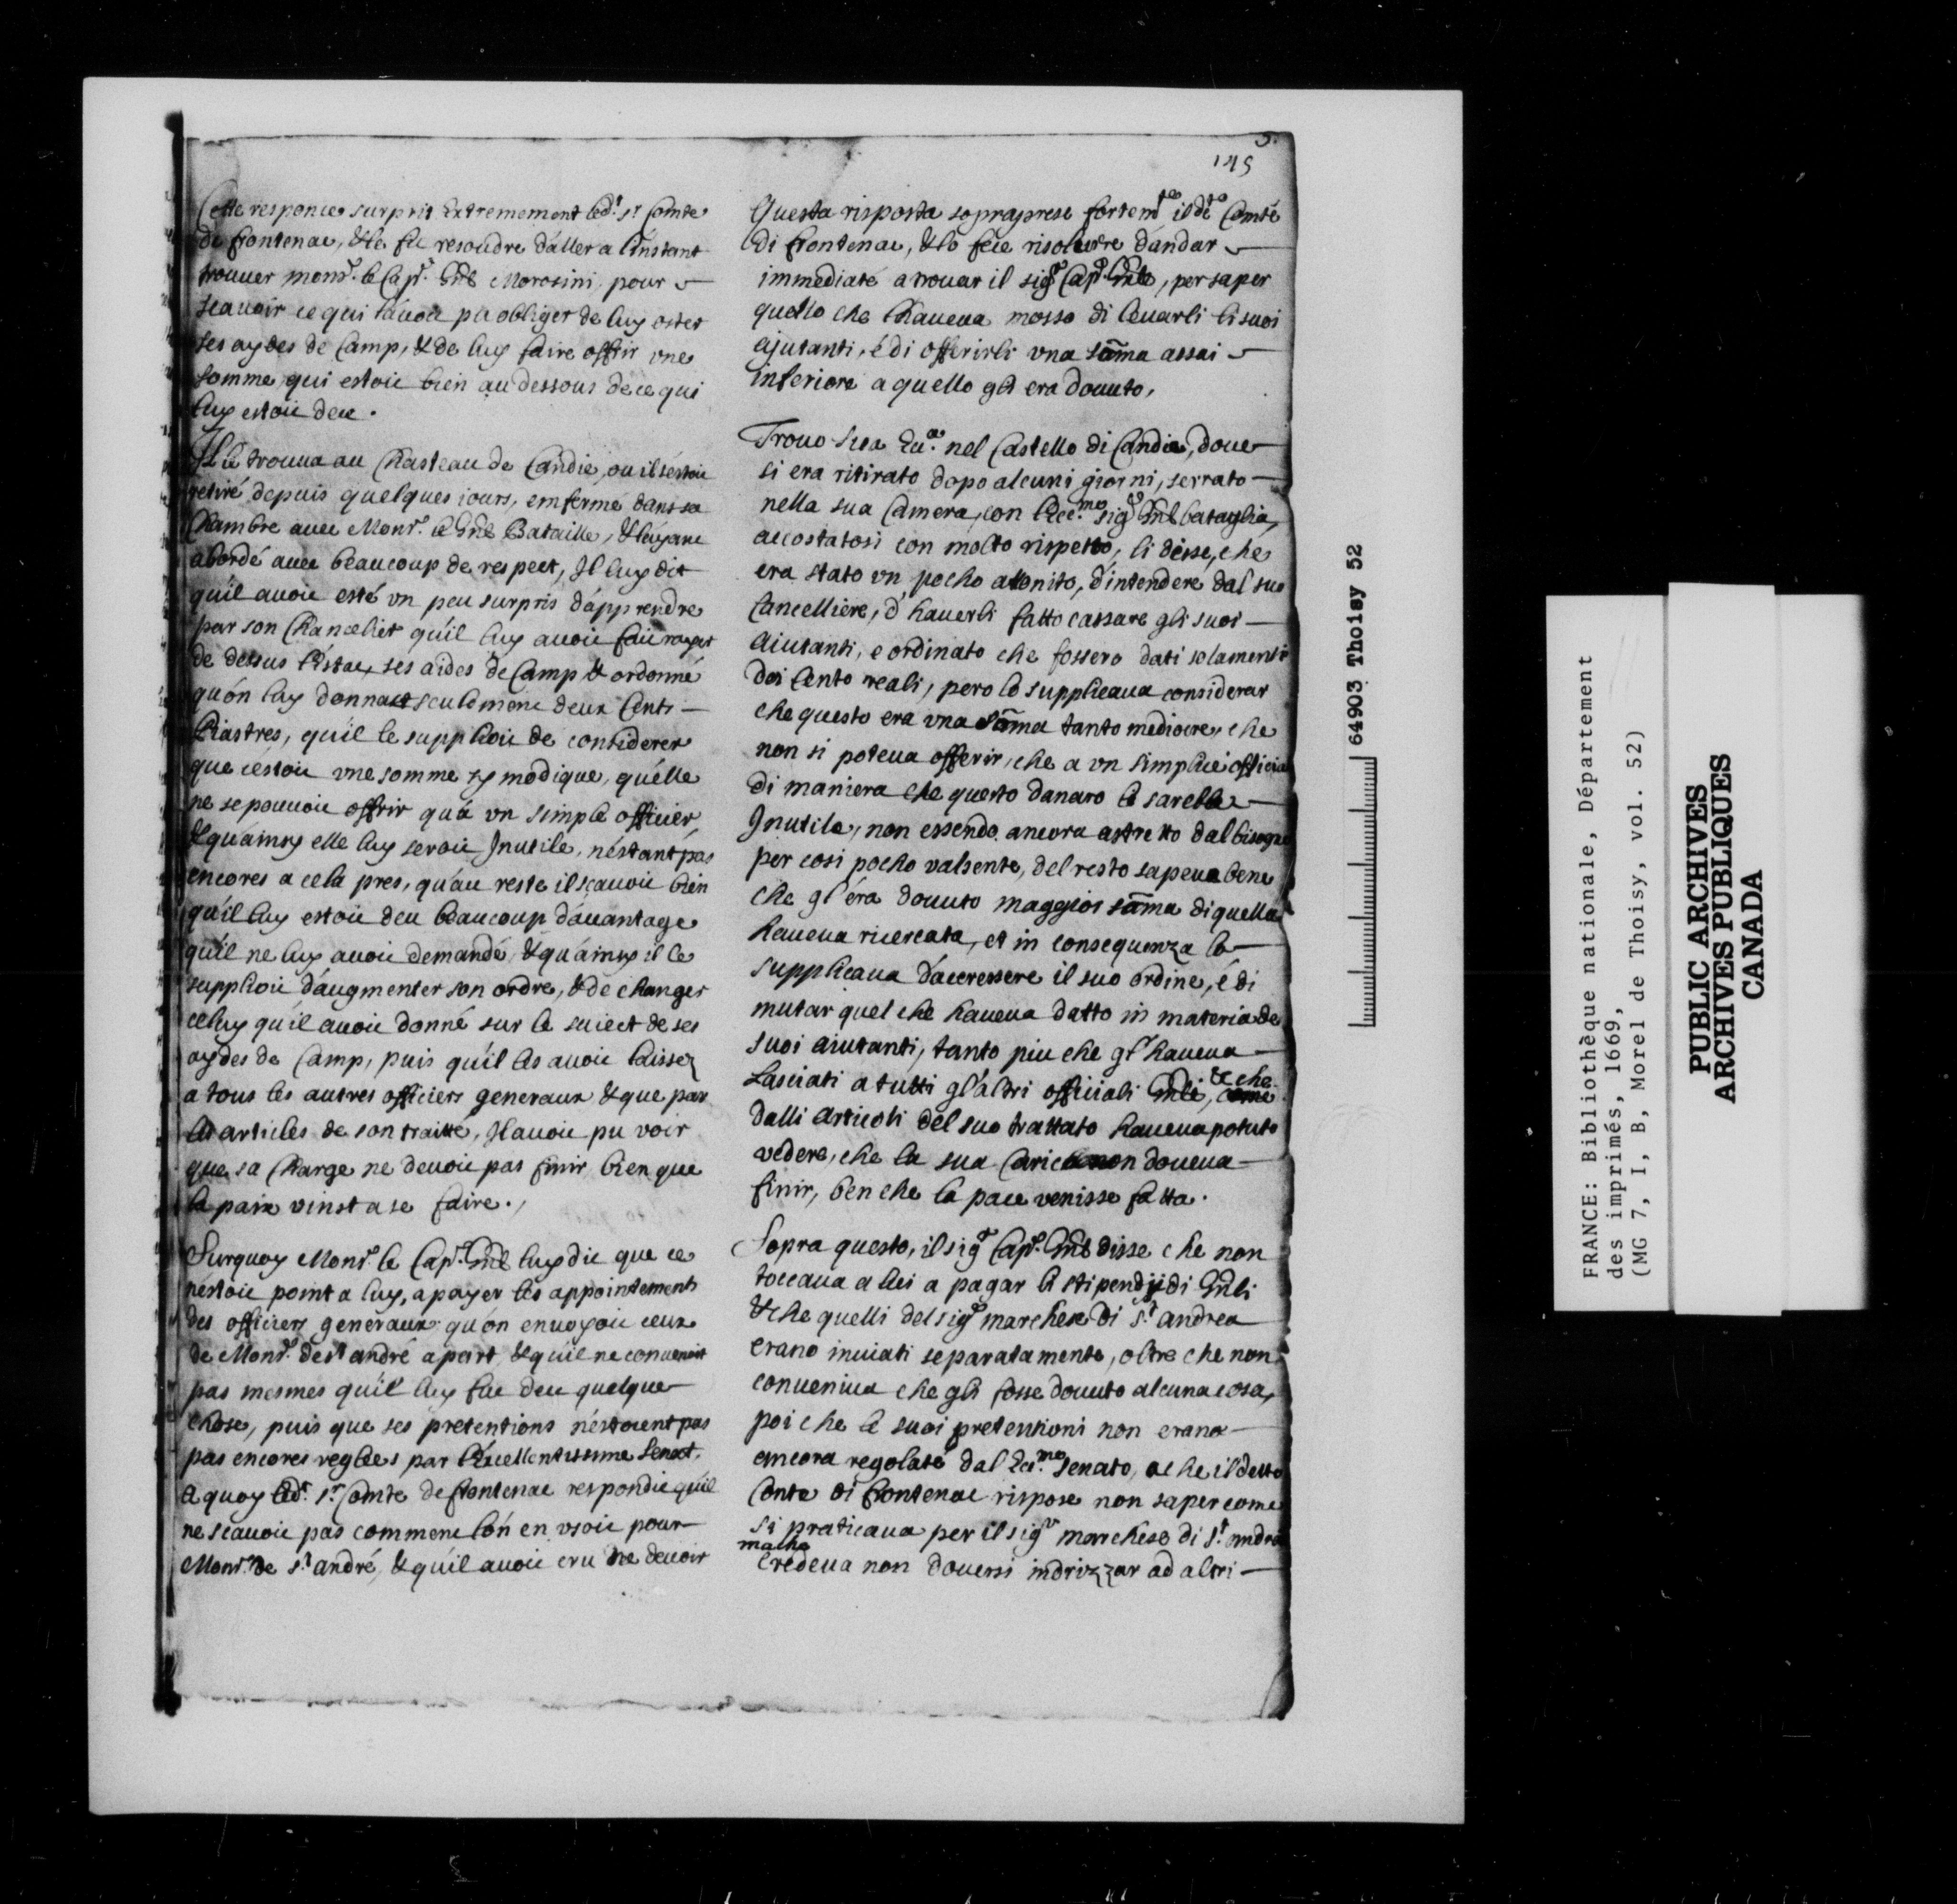 5.
145
Cette responce surprit Extremement led.t s.r Comte
de frontenac, & le fit resoudre d'aller a l'instant
trouuer mons.r le Cap.e Gnl Morosini, pour
scauoir ce qui l'auoit pu obliger de luy oster
ses aydes de Camp, & de luy faire offrir vne
somme, qui estoit bien au dessous de ce qui
luy estoit deu.
Il le trouua au Chasteau de Candie, ou il s'estoit
retiré depuis quelques iours, enfermé dans sa
Chambre auec Mons.r le Gnl Bataille, & l'ayant
abordé auec beaucoup de respect, Il luy dit
qu'il auoit esté vn peu surpris d'apprendre
par son Chancelier qu'il luy auoit fait rayer
de dessus l'estat, ses aides de Camp & ordonné
qu'on luy donnast seulement deux Cents
Piastres, qu'il le supplioit de considerer
que c'estoit vne somme sy modique, qu'elle
ne se pouuoit offrir qu'a vn simple officier,
& qu'ainsy elle luy seroit Inutile, n'estant pas
encores a cela pres, qu'au reste il scauoit bien
qu'il luy estoit deu beaucoup d'auantage
qu'il ne luy auoit demandé, & qu'ainsy il le
supplioit d'augmenter son ordre, & de changer
celuy qu'il auoit donné sur le suiect de ses
aydes de Camp, puis qu'il les auoit laissez
a tous les autres officiers generaux & que par
les articles de son traitté, Il auoit pu voir
que sa Charge ne deuoit pas finir bien que
la paix vinst a se faire.
Surquoy Mons.r le Cap.e Gnl luy dit que ce
n'estoit point a luy, a payer les appointements
des officiers generaux qu'on enuoyoit ceux
de Mons.r de s.t andré a part, & qu'il ne conuenoit
pas mesmes qu'il luy fut deu quelque
chose, puis que ses pretentions n'estoient pas
pas encores reglées par l'Excellentissime Senat.
A quoy led.t s.r Comte de frontenac respondit qu'il
ne scauoit pas comment l'on en vsoit pour
Mons.r de s.t andré, & qu'il auoit cru ne deuoir
Questa risposta sopraprese fortem.te il det.o Comte
di frontenac, & lo fece risoluere d'andar
immediaté a trouar il sig.r Cap.o Gnle, per saper
quello che l'haueua mosso di leuarli li suoi
ajutanti, é di offerirli vna sõma assai
inferiore a quello gli era douuto,
Trouo sua Ecc.a nel Castello di Candia, doue
si era ritirato dopo alcuni giorni, serrato
nella sua Camera, con l'Ecc.mo sig.r Gnl bataglia,
accostatosi con molto rispetto, li disse, che
era stato vn pocho attonito, d'intendere dal suo
Cancelliere, d'hauerli fatto cassare gli suoi
Aiutanti, e ordinato che fossero dati solamente
doi Cento reali, pero lo supplicaua considerar
che questo era vna sõma tanto mediocre, che
non si poteua offerir, che a vn simplice officia
di maniera che questo danaro le sarebbe
Inutile, non essendo ancora astretto dal bisogno
per cosi pocho valsente, del resto sapeua bene
che gl'era douuto maggior sõma di quella
haueua ricercata, et in consequenza lo
supplicaua d'accrescere il suo ordine, é di
mutar quel che haueua datto in materia de
suoi aiutanti, tanto piu che gl'haueua
Lasciati a tutti gl'altri officiali Gnli, & che
dalli articoli del suo trattato haueua potuto
vedere, che la sua Carica non doueua
finir, ben che la pace venisse fatta.
Sopra questo, il sig.r Cap.o Gnl disse che non
toccaua a lui a pagar li stipendij di Gnli
& che quelli del sig.r marchese di s.t andrea
erano inuiati separatamente, oltre che non
conueniua che gli fosse douuto alcuna cosa,
poi che le suoi pretentioni non erano
ancora regolate dal Ecc.mo Senato, a che il detto
Conte di frontenac rispose non saper come
si praticaua per il sig.r marchese di s.t andrea
ma che
credeua non douersi indrizzar ad altri
64903 Thoisy 52
FRANCE: Bibliothèque nationale, Département
des imprimés, 1669,
(MG 7, I, B, Morel de Thoisy, vol. 52)
PUBLIC ARCHIVES
ARCHIVES PUBLIQUES
CANADA